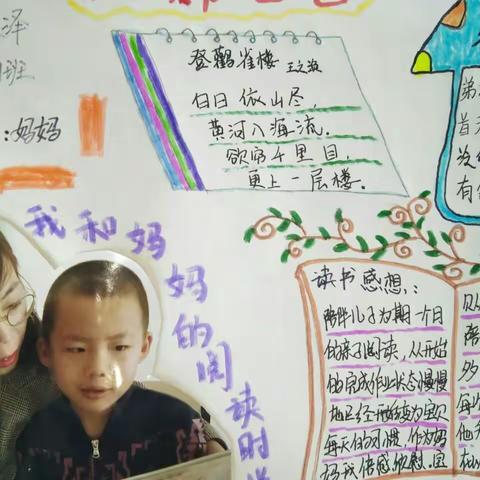 泽
班
:妈妈
登鹳雀楼 王之涣
白日依山尽,
黄河入海流.
欲穷千里目,
更上一层楼.
我和妈妈的阅读时
读书感想:
陪伴儿子为期一个日
的亲子阅读,从开始
的完成作业状态慢慢
地已经形成转变为宝贝
每天的习惯,作为妈
妈我倍感欣慰.宝
第
首
没
有
从
陪
多
每
他